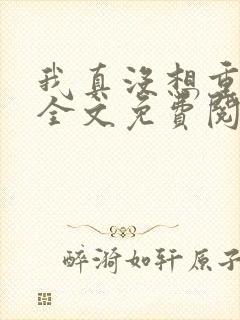 我真没想重
全文免费阅
醉漪如轩原子